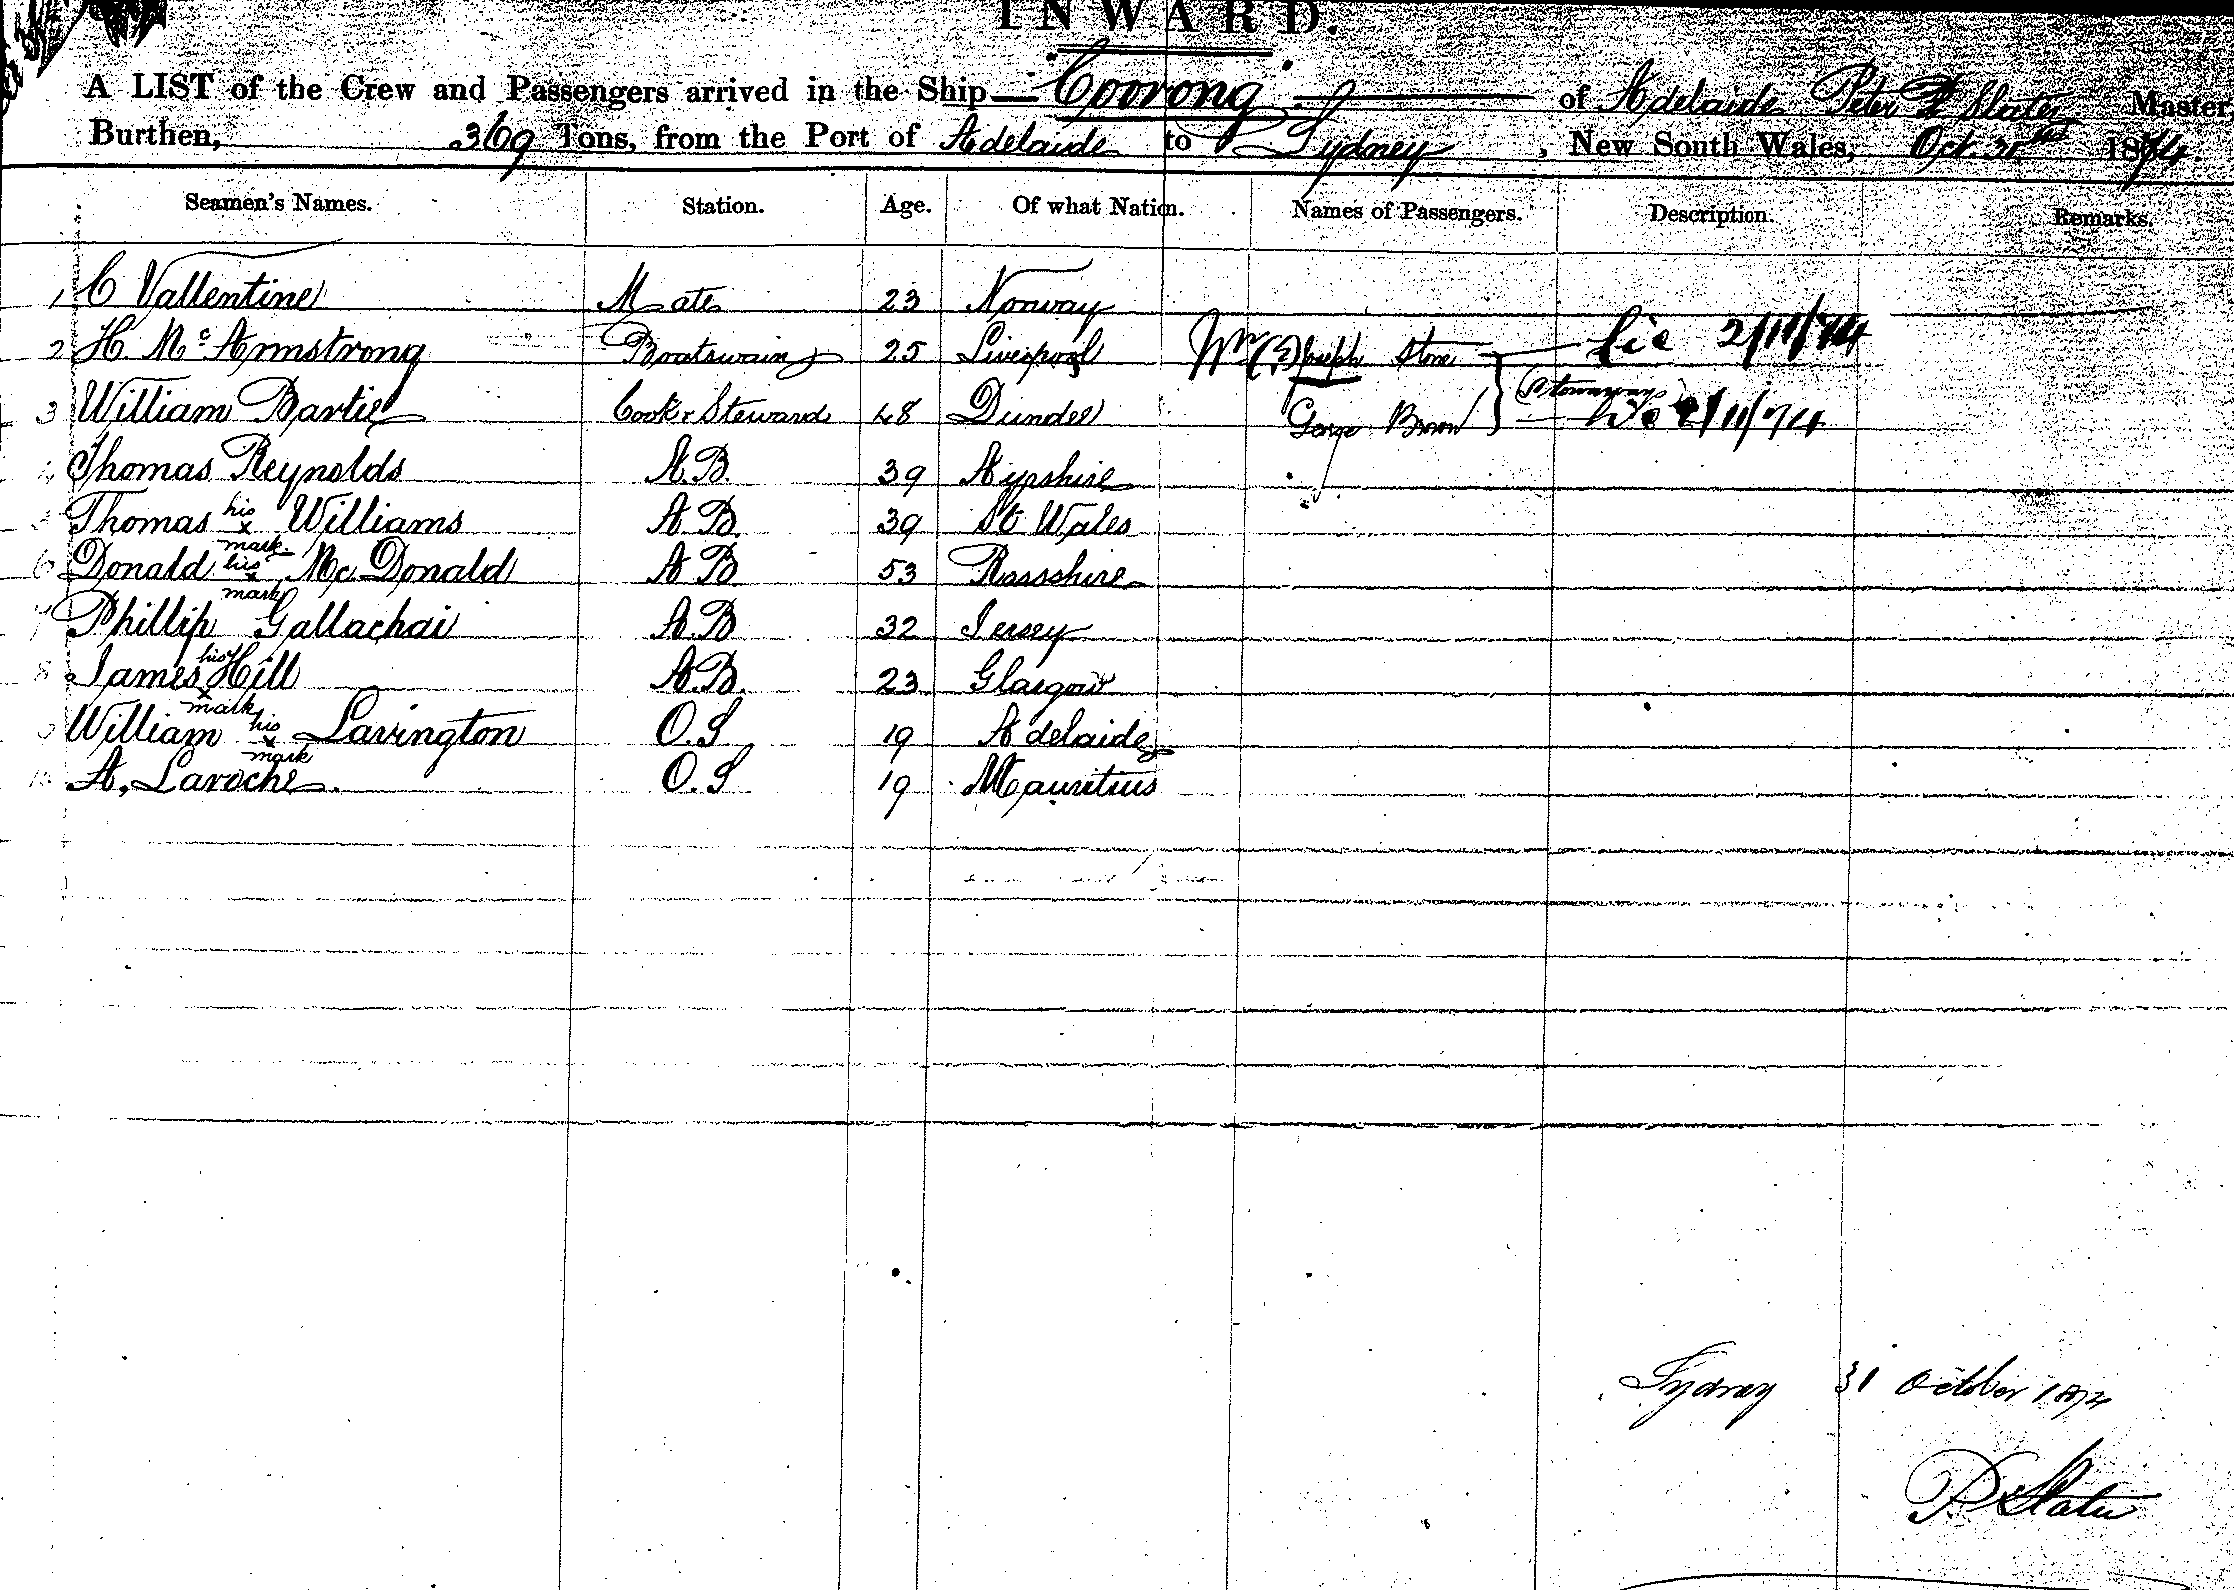 INWARD.
A LIST of the Crew and Passengers arrived in the Ship "Coorong" of Adelaide Peter Slater Master,
Burthen, 369 Tons, from the Port of Adelaide to Sydney, New South Wales, Oct. 31st 1874.
Seamen's Names. Station. Age. Of what Nation. Names of Passengers. Description. Remarks.
1 C Vallentine Mate 23 Norway
2 H. Mc Armstrong Boatswain 25 Liverpool Wm (E) Joseph Stone 2/11/74
3 William Bartie Cook & Steward 48 Dundee George Brown (Stowaways) 2/11/74
4 Thomas Reynolds A.B. 39 Ayrshire
5 Thomas his x mark Williams A.B. 39 St Wales
6 Donald his x mark Mc Donald A B 53 Rossshire
7 Phillip Gallachai A.B 32 Jersey
8 James his x mark Hill A.B. 23 Glasgow
9 William his x mark Lavington O.S 19 Adelaide
10 A. Laroche. O.S 19 Mauritius
Sydney 31 October 1874
P Slater